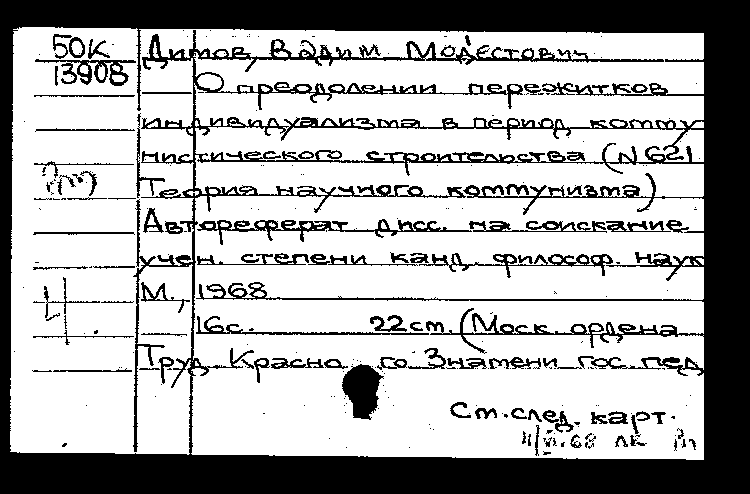 50К
13908
Дитов, Вадим Модестович
О преодолении пережитков
индивидуализма в период комму
нистического строительства (N 621
Теория научного коммунизма).
Автореферат дисс. на соискание
учен. степени канд. философ. наук
М., 1968
16с. 22ст. (Моск. ордена
Труд. Красно го Знамени гос. пед
Ст. след. карт.
68 ЛК